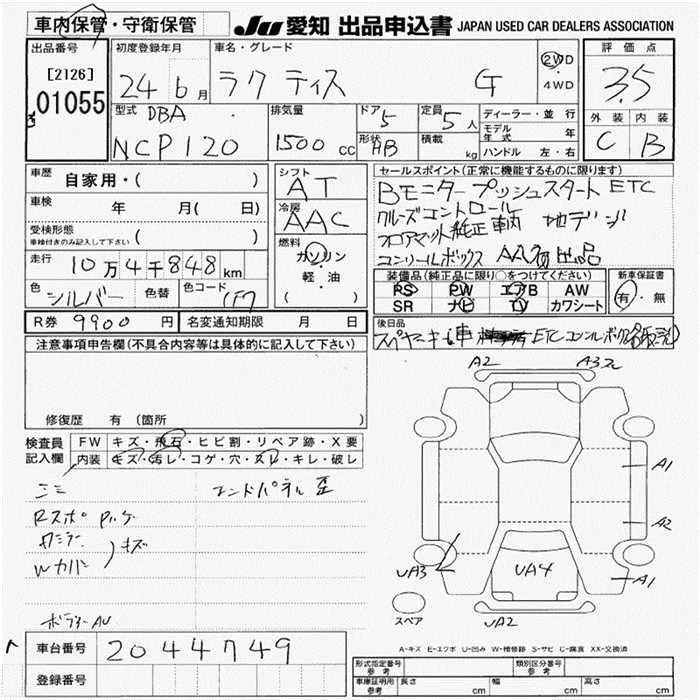 車内保管・守衛保管
JU 愛知 出品申込書 JAPAN USED CAR DEALERS ASSOCIATION
出品番号 初度登録年月 車名・グレード 評価点
[2126]
01055
24年6月 ラクティス G 2WD・4WD 3.5
型式 DBA 排気量 ドア 5 定員 5人 ディーラー・並行 外装 内装
NCP120 1500cc 形状 HB 積載 kg モデル年式 年 C B
ハンドル 左・右
車歴 自家用・( ) シフト AT セールスポイント(正常に機能するものに限ります)
車検 年 月( 日) 冷房 AAC Bモニター プッシュスタート ETC
受検形態 クルーズコントロール 地デジ
車検付きのみ記入して下さい ( ) フロアマット純正 車両
燃料 ガソリン・軽・油 ( )
走行 10万4千848km 装備品(純正品に限り○をつけてください) 新車保証書
PS PW エアB AW 有・無
SR ナビ TV カワシート
色 シルバー 色替 色コード (1F7
R券 9900円 名変通知期限 月 日 後日品
注意事項申告欄(不具合内容等は具体的に記入して下さい)
修復歴 有 (箇所 )
検査員記入欄 FW キズ・飛石・ヒビ割・リペア跡・X要
内装 キズ・汚レ・コゲ・穴・スレ・キレ・破レ
エンドパネル 歪
Rスポ
キズ
Wカバー
A2 A3
A1
A2
A1
UA3 UA4
UA2
スペア
A-キズ E-エクボ U-凹み W-補修跡 S-サビ C-腐食 XX-交換済
車台番号 2044749
登録番号
形式指定番号 参考 類別区分番号 参考
車庫証明用 参考 長さ cm 幅 cm 高さ cm